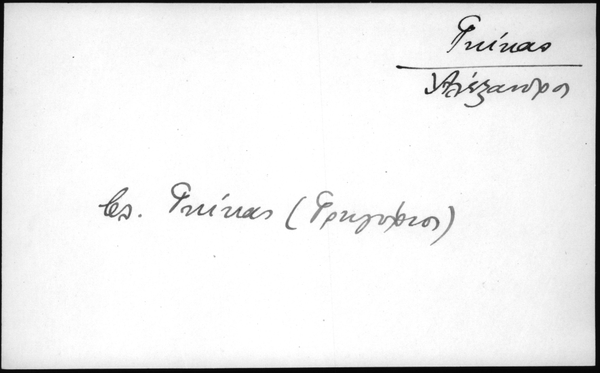 Γκίκας
Αλέξανδρος
βλ. Γκίκας (Γρηγόριος)